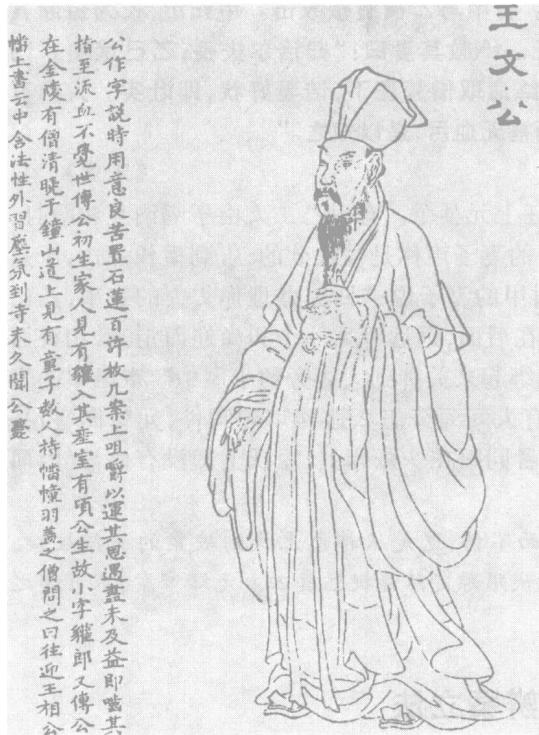 王文公
公作字説時用意良苦置石蓮百許枚几案上咀嚼以運其思遇盡未及益即嚙其
指至流血不覺世傳公初生家人見有貛入其產室有頃公生故小字貛郎又傳公
在金陵有僧清曉于鐘山道上見有童子數人持幡幢羽蓋之僧問之曰往迎王相公
幡上書云中含法性外習塵氛到寺未久聞公薨